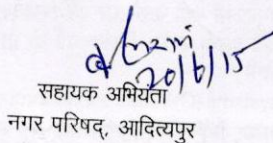 20/6/15
सहायक अभियंता
नगर परिषद्, आदित्यपुर